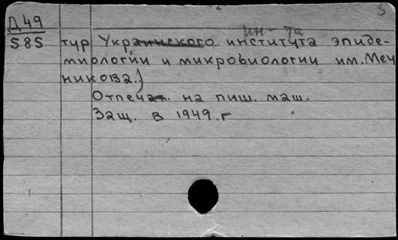 Д49
585
ин-та
тур Украинского института эпиде-
миологии и микробиологии им. Меч
никова.)
Отпечат. на пиш. маш.
Защ. в 1949.г